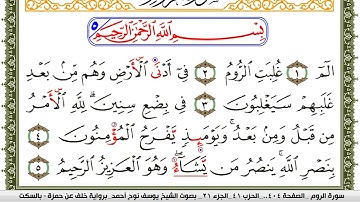 بِسْمِ اللَّهِ الرَّحْمَٰنِ الرَّحِيمِ
الٓمٓ ١ غُلِبَتِ الرُّومُ ٢ فِىٓ أَدْنَى الْأَرْضِ وَهُم مِّنۢ بَعْدِ
غَلَبِهِمْ سَيَغْلِبُونَ ٣ فِى بِضْعِ سِنِينَ ۗ لِلَّهِ الْأَمْرُ
مِن قَبْلُ وَمِنۢ بَعْدُ ۚ وَيَوْمَئِذٍ يَفْرَحُ الْمُؤْمِنُونَ ٤
بِنَصْرِ اللَّهِ ۚ يَنصُرُ مَن يَشَآءُ ۖ وَهُوَ الْعَزِيزُ الرَّحِيمُ ٥
سورة الروم .. الصفحة ٤٠٤.. الحزب ٤١..الجزء ٢١.. بصوت الشيخ يوسف نوح أحمد..برواية خلف عن حمزة - بالسكت